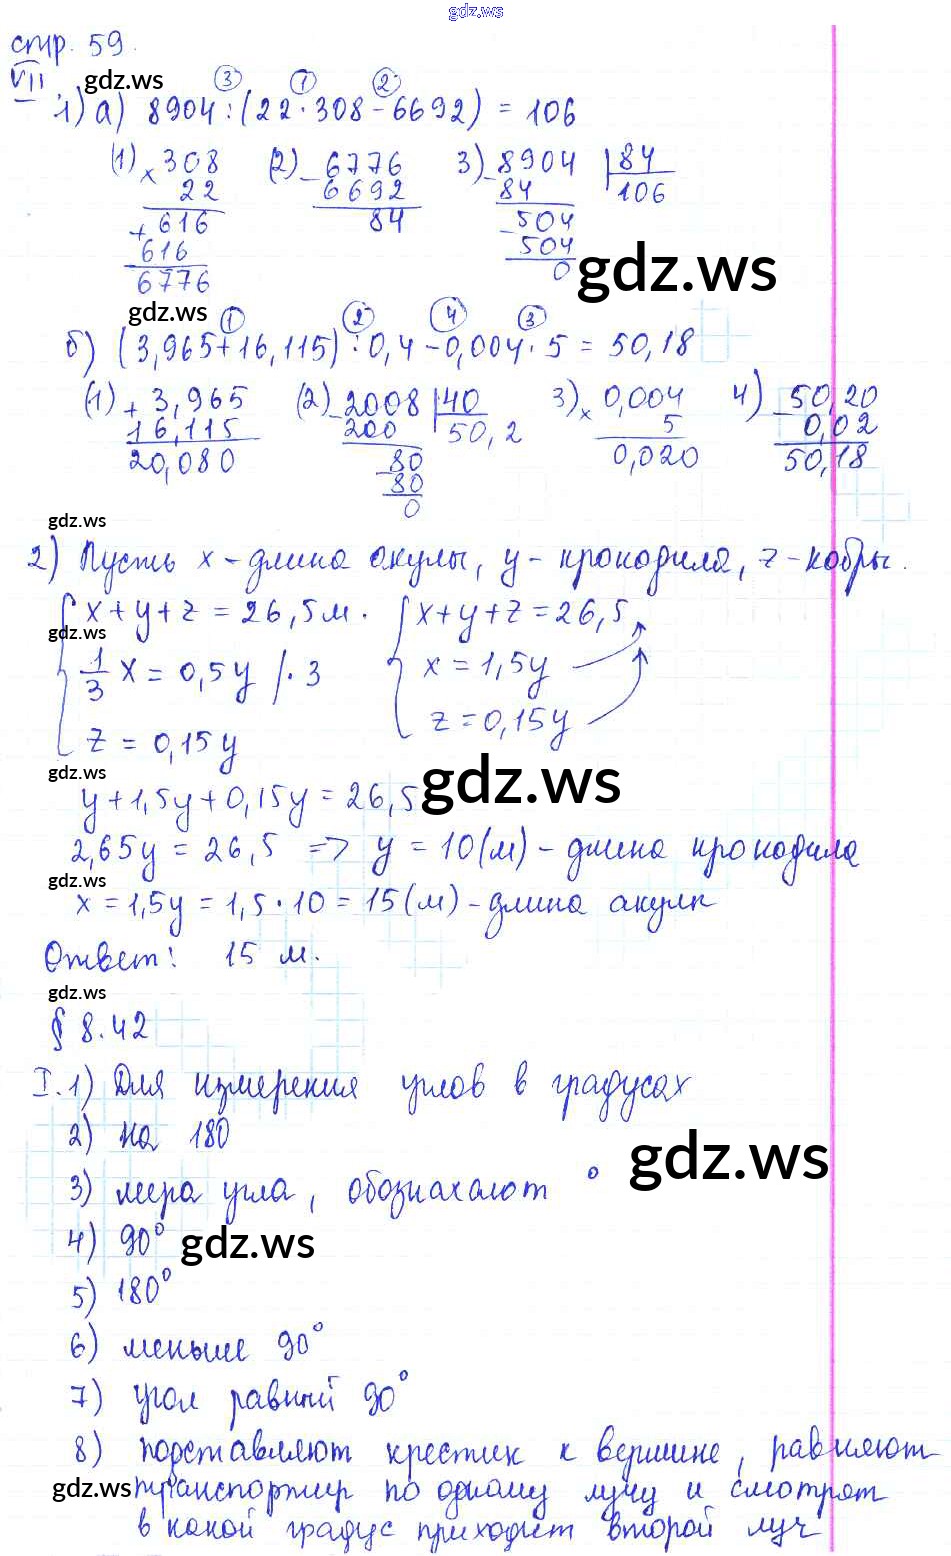 gdz.ws
стр. 59.
VII
gdz.ws
3 1 2
1) а) 8904 : (22 · 308 - 6692) = 106
(1) × 308 (2) - 6776 3) - 8904 | 84
22 6692 84 106
+ 616 84 - 504
616 504
6776 0
gdz.ws
gdz.ws
1 2 4 3
б) (3,965 + 16,115) : 0,4 - 0,004 · 5 = 50,18
(1) + 3,965 (2) - 2008 | 40 3) × 0,004 4) - 50,20
16,115 200 50,2 5 0,02
20,080 - 80 0,020 50,18
80
0
gdz.ws
2) Пусть x - длина акулы, y - крокодила, z - кобры.
x + y + z = 26,5 м. x + y + z = 26,5
gdz.ws
1/3 x = 0,5y /· 3 x = 1,5y
z = 0,15y z = 0,15y
gdz.ws
gdz.ws
y + 1,5y + 0,15y = 26,5
2,65y = 26,5 => y = 10 (м) - длина крокодила
gdz.ws
x = 1,5y = 1,5 · 10 = 15 (м) - длина акулы
Ответ: 15 м.
gdz.ws
§ 8.42
I. 1) Для измерения углов в градусах
2) на 180
gdz.ws
3) мера угла, обозначают °
4) 90°
gdz.ws
5) 180°
6) меньше 90°
7) угол равный 90°
8) подставляют крестик к вершине, равняют
gdz.ws
транспортир по одному лучу и смотрят
в какой градус приходит второй луч